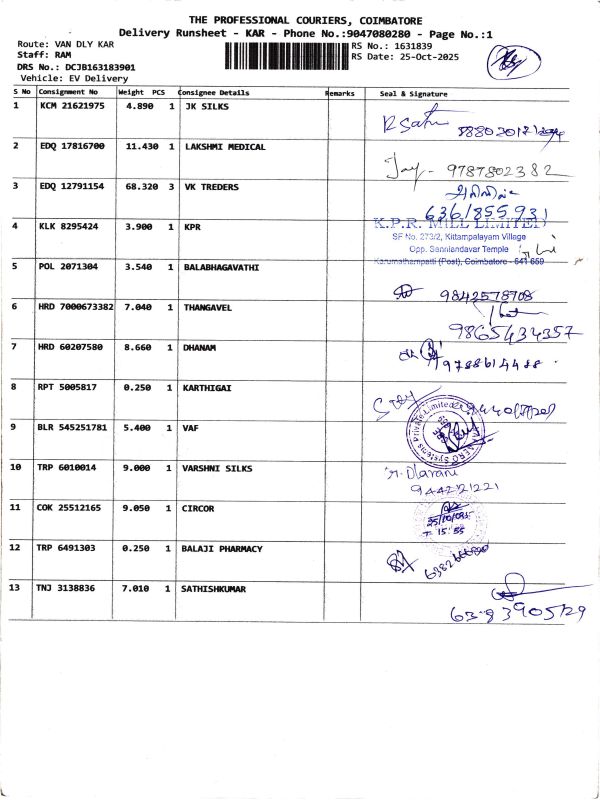 THE PROFESSIONAL COURIERS, COIMBATORE
Delivery Runsheet - KAR - Phone No.:9047080280 - Page No.:1
Route: VAN DLY KAR
Staff: RAM
DRS No.: DCJB163183901
Vehicle: EV Delivery
RS No.: 1631839
RS Date: 25-Oct-2025
S No Consignment No Weight PCS Consignee Details Remarks Seal & Signature
1 KCM 21621975 4.890 1 JK SILKS
2 EDQ 17816700 11.430 1 LAKSHMI MEDICAL
Jay - 9787802382
3 EDQ 12791154 68.320 3 VK TREDERS
6361855931
4 KLK 8295424 3.900 1 KPR
K.P.R. MILL LIMITED
SF No. 273/2, Kittampalayam Village
Opp. Sanniandavar Temple
Karumathampatti (Post), Coimbatore - 641 659
5 POL 2071304 3.540 1 BALABHAGAVATHI
9842578708
6 HRD 7000673382 7.040 1 THANGAVEL
9865434357
7 HRD 60207580 8.660 1 DHANAM
9788614488
8 RPT 5005817 0.250 1 KARTHIGAI
9 BLR 545251781 5.400 1 VAF
AERO Systems Private Limited
10 TRP 6010014 9.000 1 VARSHNI SILKS
944221221
11 COK 25512165 9.050 1 CIRCOR
15:55
12 TRP 6491303 0.250 1 BALAJI PHARMACY
13 TNJ 3138836 7.010 1 SATHISHKUMAR
6383905129